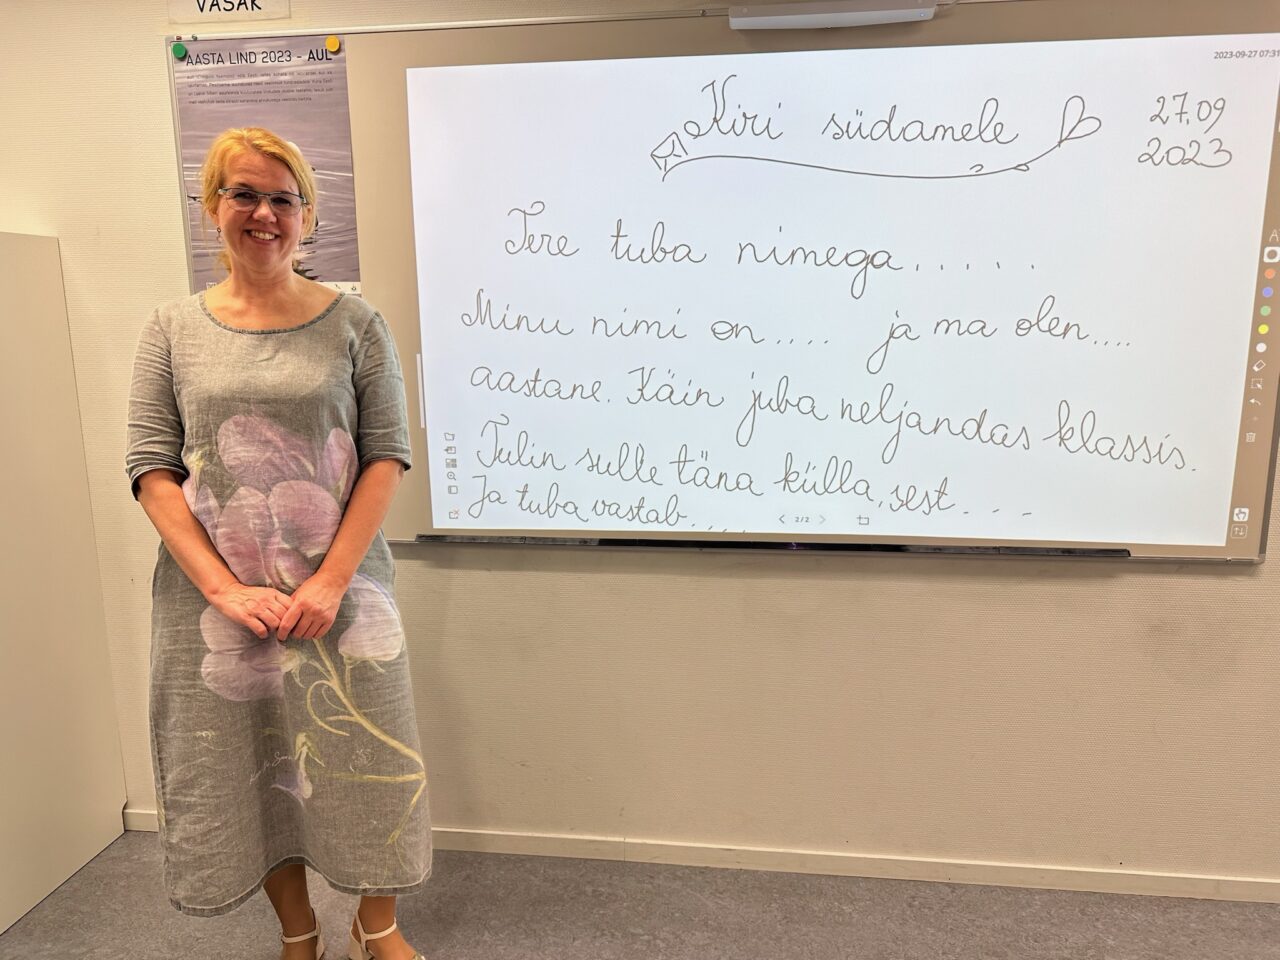 VASAK
AASTA LIND 2023 - AUL
2023-09-27 07:31
Kiri südamele
27.09
2023
Tere tuba nimega.....
Minu nimi on.... ja ma olen....
aastane. Käin juba neljandas klassis.
Tulin sulle täna külla, sest....
Ja tuba vastab.....
2/2